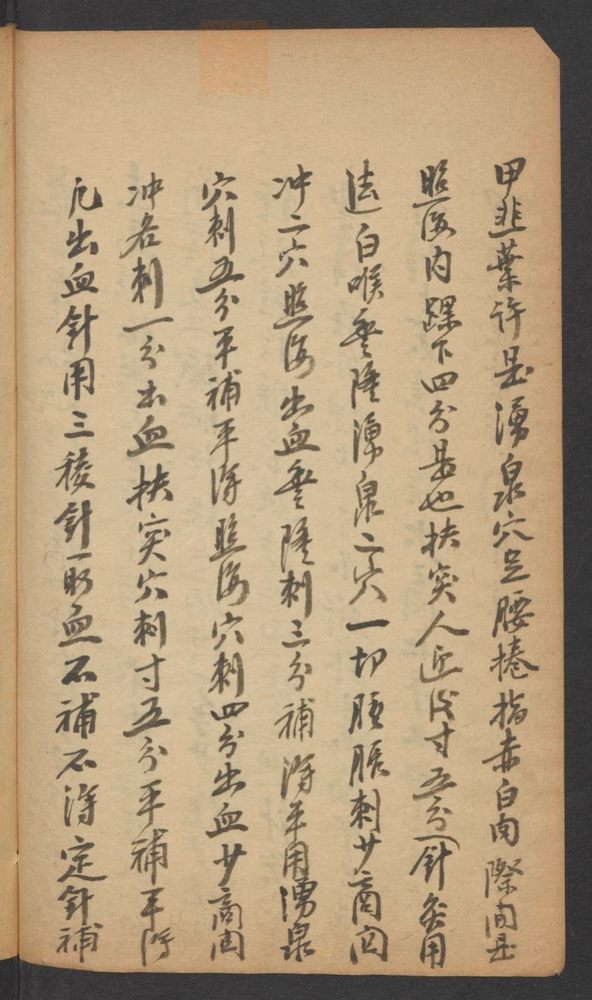 甲韭葉許是湧泉穴足腰捲指赤白肉際間是
照海内踝下四分是也扶突人迎後寸五分針灸用
法白喉豊隆湧泉二穴一切腫脹刺少商関
冲二穴照海出血豊隆刺三分補瀉平用湧泉
穴刺五分平補平瀉照海穴刺四分出血少商関
冲各刺一分出血扶突穴刺寸五分平補平瀉
凡出血針用三稜針一取血不補不瀉定針補